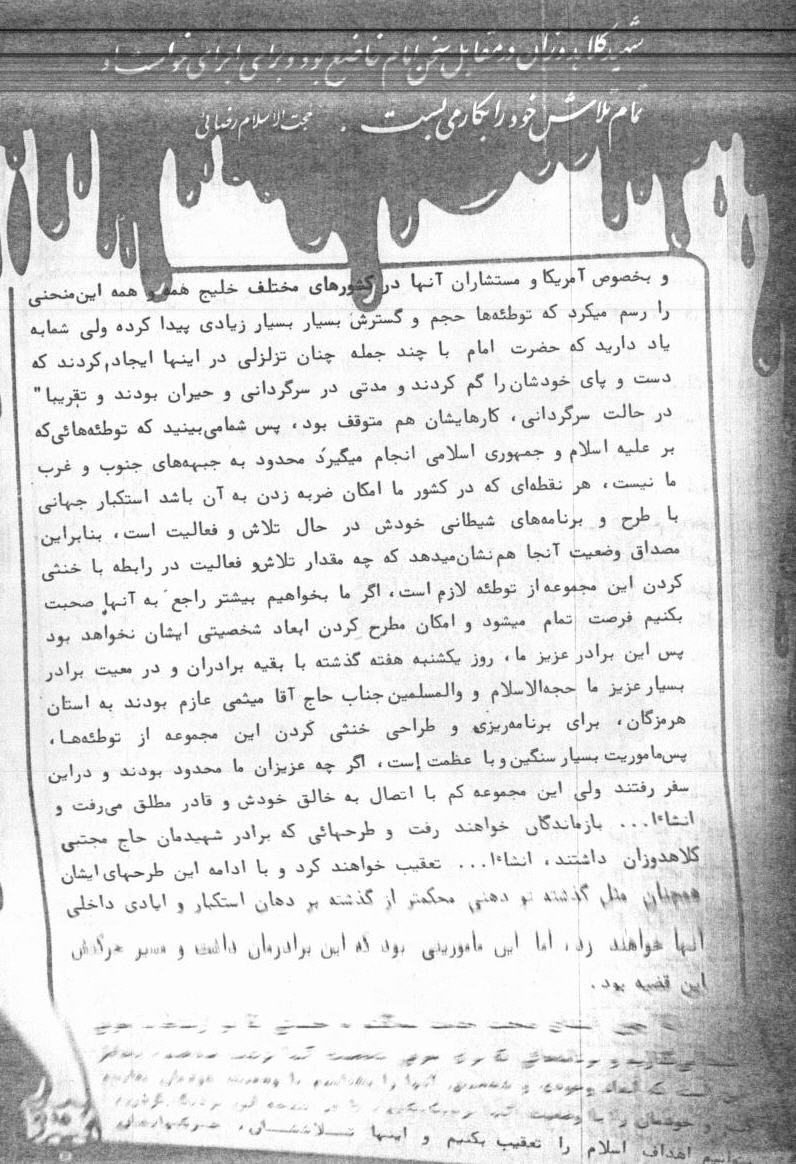 شهید کلاهدوزان در مقابل سخن امام خاضع بود و برای اجرای خواست او
تمام تلاش خود را بکار می‌بست. حجت‌الاسلام رضائی
و بخصوص آمریکا و مستشاران آنها در کشورهای مختلف خلیج همه و همه این‌منحنی
را رسم میکرد که توطئه‌ها حجم و گسترش بسیار بسیار زیادی پیدا کرده ولی شمابه
یاد دارید که حضرت امام با چند جمله چنان تزلزلی در اینها ایجاد کردند که
دست و پای خودشان را گم کردند و مدتی در سرگردانی و حیران بودند و تقریبا"
در حالت سرگردانی، کارهایشان هم متوقف بود، پس شمامی‌بینید که توطئه‌هائی‌که
بر علیه اسلام و جمهوری اسلامی انجام میگیرد محدود به جبهه‌های جنوب و غرب
ما نیست، هر نقطه‌ای که در کشور ما امکان ضربه زدن به آن باشد استکبار جهانی
با طرح و برنامه‌های شیطانی خودش در حال تلاش و فعالیت است، بنابراین
مصداق وضعیت آنجا هم نشان‌میدهد که چه مقدار تلاش‌و فعالیت در رابطه با خنثی
کردن این مجموعه از توطئه لازم است، اگر ما بخواهیم بیشتر راجع به آنها صحبت
بکنیم فرصت تمام میشود و امکان مطرح کردن ابعاد شخصیتی ایشان نخواهد بود
پس این برادر عزیز ما، روز یکشنبه هفته گذشته با بقیه برادران و در معیت برادر
بسیار عزیز ما حجه‌الاسلام و والمسلمین جناب حاج آقا میثمی عازم بودند به استان
هرمزگان، برای برنامه‌ریزی و طراحی خنثی کردن این مجموعه از توطئه‌ها،
پس‌ماموریت بسیار سنگین و با عظمت است، اگر چه عزیزان ما محدود بودند و دراین
سفر رفتند ولی این مجموعه کم با اتصال به خالق خودش و قادر مطلق می‌رفت و
انشاءا... بازماندگان خواهند رفت و طرحهائی که برادر شهیدمان حاج مجتبی
کلاهدوزان داشتند، انشاءا... تعقیب خواهند کرد و با ادامه این طرحهای ایشان
همچنان مثل گذشته تو دهنی محکمتر از گذشته بر دهان استکبار و ایادی داخلی
آنها خواهند زد، اما این ماموریتی بود که این برادرمان داشت و مسیر حرکتش
این قضیه بود.
است که ابعاد وجودی و شخصیتی آنها را بشناسیم
و خودمان را با وضعیت
اهداف اسلام را تعقیب بکنیم و اینها